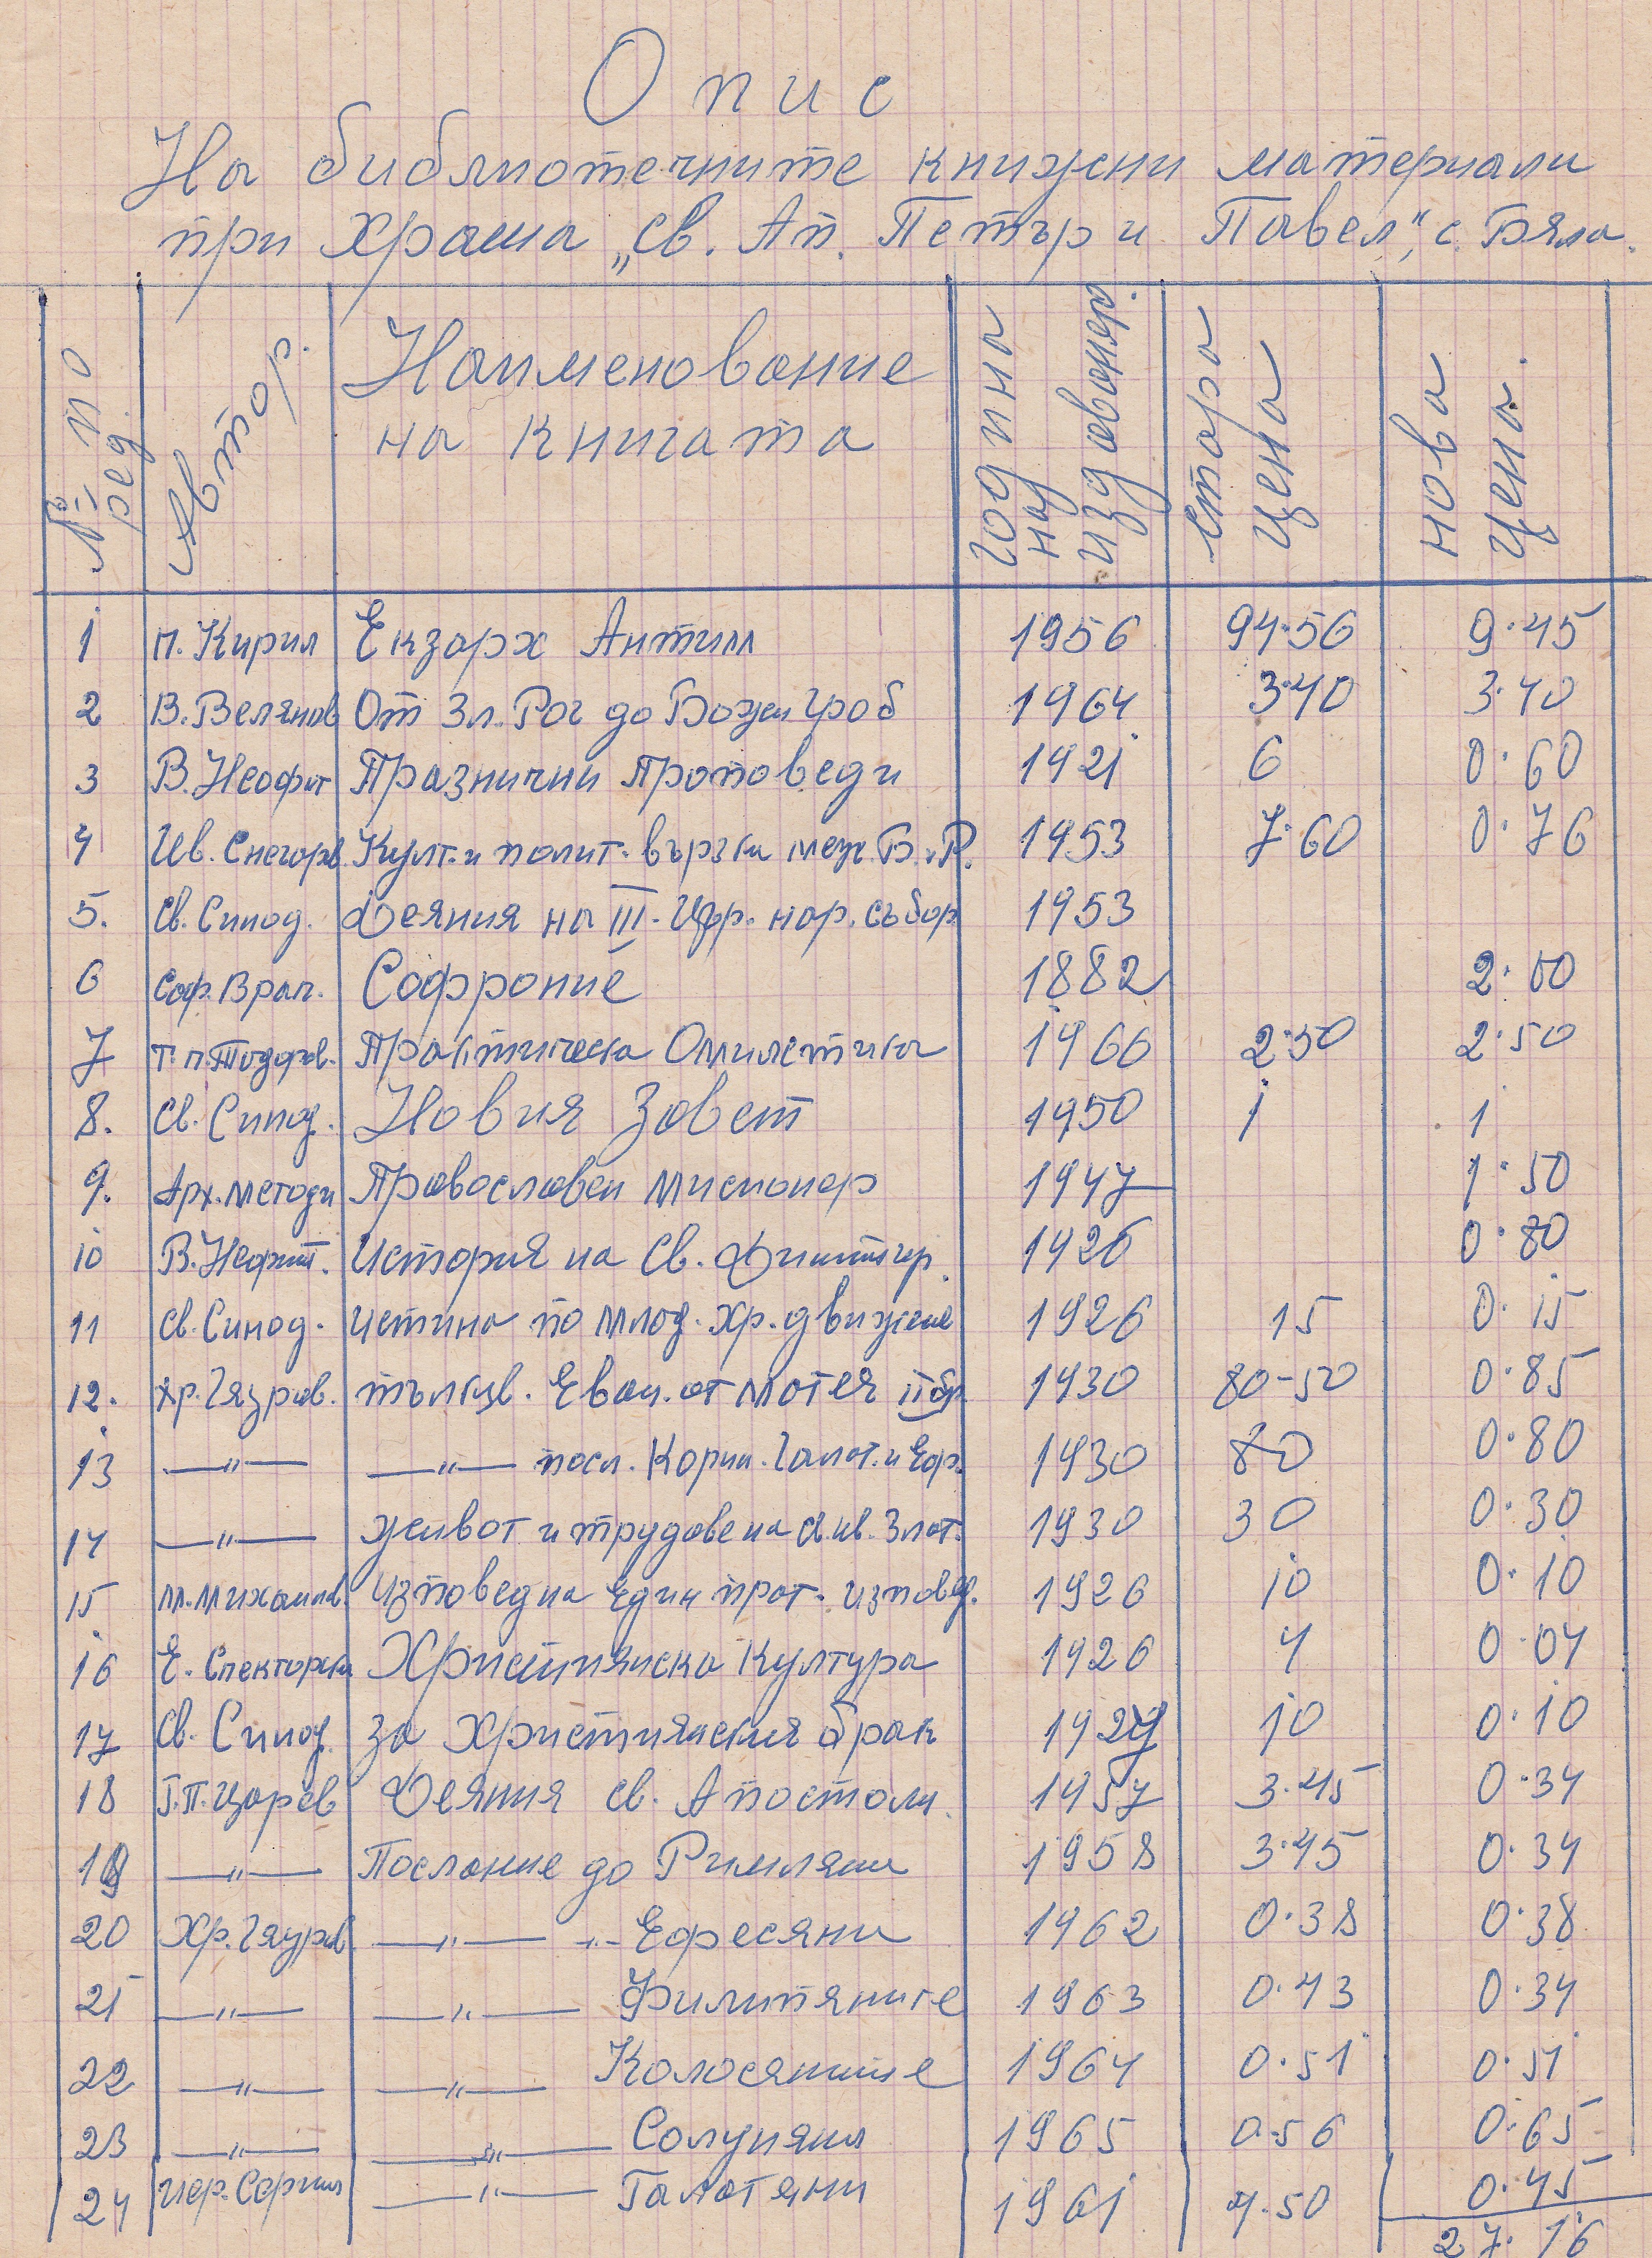 Опис
На библиотечните книжни материали
при Храма „Св. Ап. Петър и Павел", с. Бяла.
№ по ред Автор. Наименование на книгата година на издаване стара цена нова цена.
1 П. Кирил Екзарх Антим 1956 94·56 9·45
2 В. Велянов От Зл. Рог до Божи гроб 1964 3·40 3·40
3 В. Неофит Празнични проповеди 1921 6 0·60
4 Ив. Снегаров Култ. и полит. връзки меж. Б. и Р. 1953 7·60 0·76
5. Св. Синод. Деяния на III. Цър. нар. събор 1953
6 Соф. Врач. Софроние 1882 2·00
7 Т. п. Тодоров. Практическа Омилетика 1966 2·50 2·50
8. Св. Синод. Новия Завет 1950 1 1
9. Арх. Методи Православен мисионер 1947 1·50
10 В. Неофит. История на Св. Димитър. 1926 0·80
11 Св. Синод. Истина по млад. хр. движение 1926 15 0·15
12. Хр. Гяуров. тълкув. Еван. от Матея II бр. 1930 80-50 0·85
13 —"— —"— посл. Корин. Галат. и Еф. 1930 80 0·80
14 —"— живот и трудове на Св. Ив. Злат. 1930 30 0·30
15 М. Михаилов. Изповед на един прот. изповед. 1926 10 0·10
16 Е. Спекторски Християнска Култура 1926 4 0·04
17 Св. Синод. За Християнския брак 1927 10 0·10
18 Г. П. Царев Деяния св. Апостоли. 1957 3·45 0·34
19 —"— Послание до Римляни 1958 3·45 0·34
20 Хр. Гяуров. —"— -"- Ефесяни 1962 0·38 0·38
21 —"— —"— Филипяните 1963 0·43 0·34
22 —"— —"— Колосяните 1964 0·51 0·51
23 —"— —"— Солуняни 1965 0·56 0·65
24 Иер. Сергии —"— Галатяни 1961 4·50 0·45
27·16